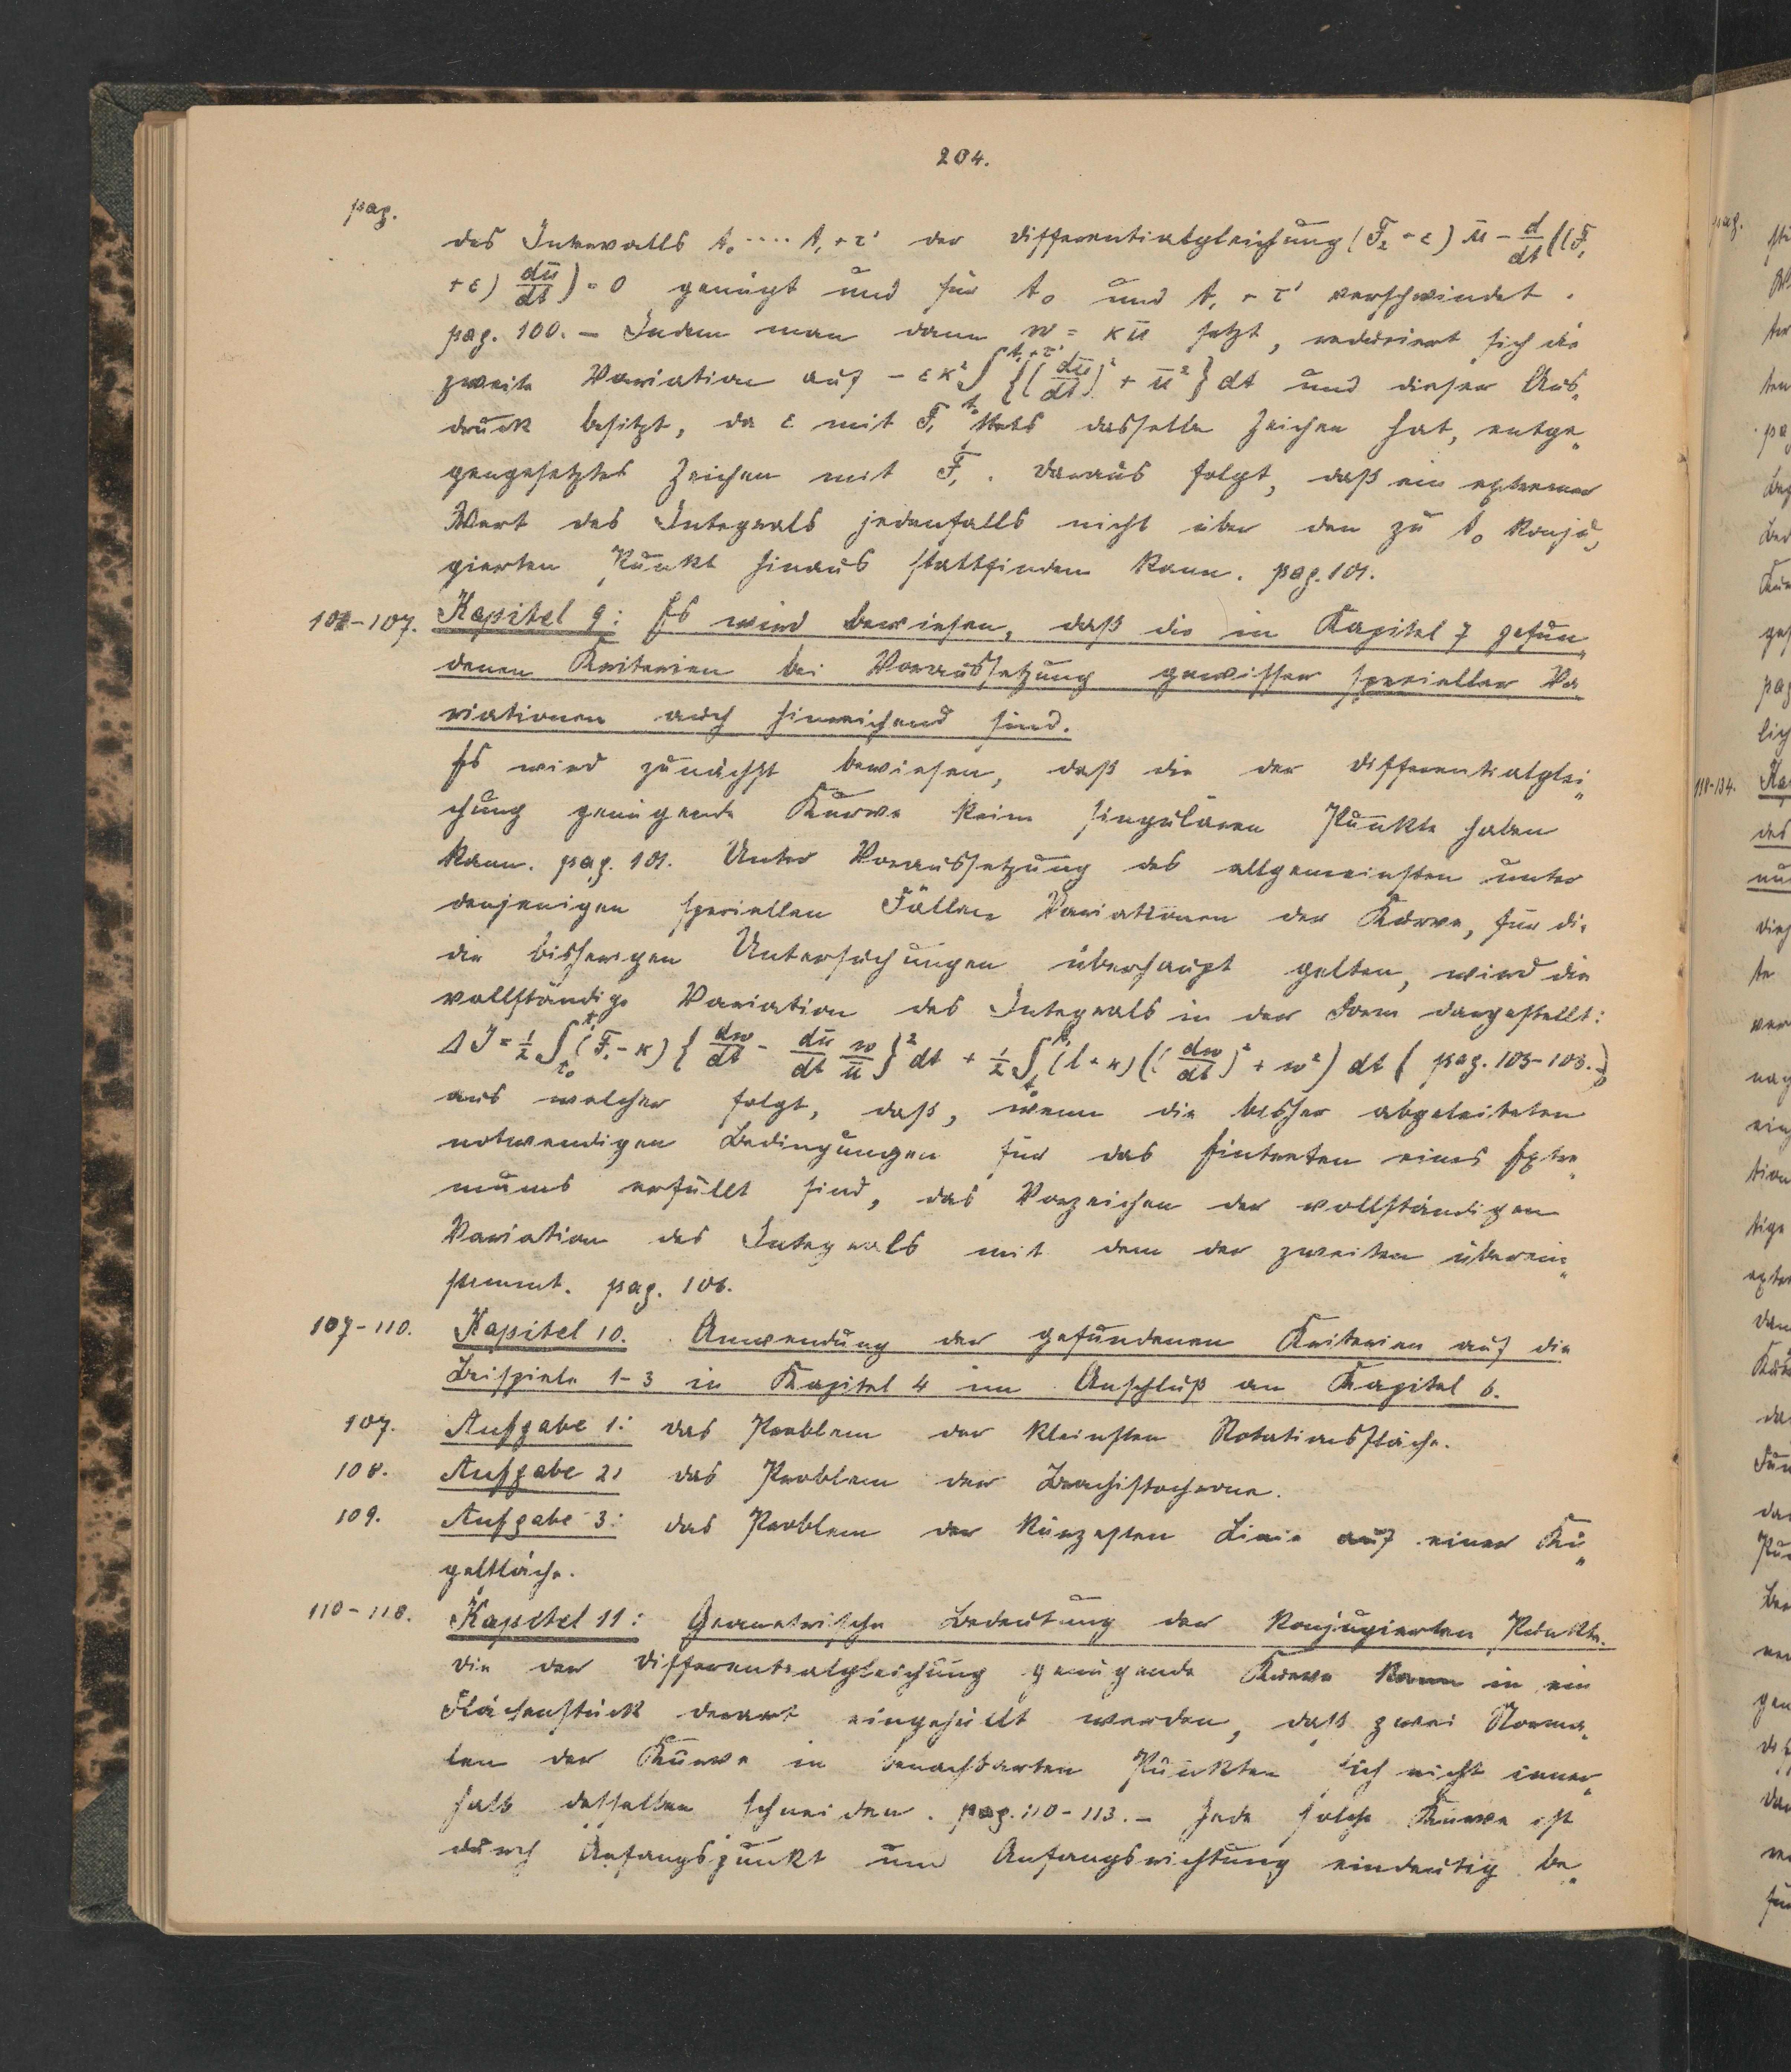 204.
pag.
des Intervalls t₀ .... t₁ + τ' der Differentialgleichung (F₂ + ε) ū − d/dt ((F₁
+ ε) dū/dt) = 0 genügt und für t₀ und t₁ + τ' verschwindet.
pag. 100. — Indem man dann w = κū setzt, reduciert sich die
zweite Variation auf − εκ² ∫_{t₀}^{t₁+τ'} {(dū/dt)² + ū²} dt und dieser Aus„
druck besitzt, da ε mit F₁ stets dasselbe Zeichen hat, entge„
gengesetztes Zeichen mit F₁. Daraus folgt, daß ein extremer
Wert des Integrals jedenfalls nicht über den zu t₀ konju„
gierten Punkt hinaus stattfinden kann. pag. 101.
101-107. Kapitel 9: Es wird bewiesen, daß die in Kapitel 7 gefun„
denen Kriterien bei Voraussetzung gewisser specieller Va„
riationen auch hinreichend sind.
Es wird zunächst bewiesen, daß die der Differentialglei„
chung genügende Kurve keine singulären Punkte haben
kann. pag. 101. Unter Voraussetzung des allgemeinsten unter
denjenigen speciellen Fällen Variationen der Kurve, für die
die bisherigen Untersuchungen überhaupt gelten, wird die
vollständige Variation des Integrals in der Form dargestellt:
ΔJ = ½ ∫_{t₀}^{t₁} (F₁ − κ) {dw/dt − dū/dt w/ū}² dt + ½ ∫_{t₀}^{t₁} (l + κ) ((dw/dt)² + w²) dt (pag. 103-105.),
aus welcher folgt, daß, wenn die bisher abgeleiteten
notwendigen Bedingungen für das Eintreten eines Extre„
mums erfüllt sind, das Vorzeichen der vollständigen
Variation des Integrals mit dem der zweiten überein„
stimmt. pag. 106.
107-110. Kapitel 10. Anwendung der gefundenen Kriterien auf die
Beispiele 1-3 in Kapitel 4 im Anschluß an Kapitel 6.
107. Aufgabe 1: das Problem der kleinsten Rotationsfläche.
108. Aufgabe 2: das Problem der Brachistochrone.
109. Aufgabe 3: das Problem der kürzesten Linie auf einer Ku„
gelfläche.
110-118. Kapitel 11: Geometrische Bedeutung der konjugierten Punkte.
Die der Differentialgleichung genügende Kurve kann in ein
Flächenstück derart eingehüllt werden, daß zwei Norma„
len der Kurve in benachbarten Punkten sich nicht inner„
halb desselben schneiden. pag. 110-113. — Jede solche Kurve ist
durch Anfangspunkt und Anfangsrichtung eindeutig be„
pag.
118-134.